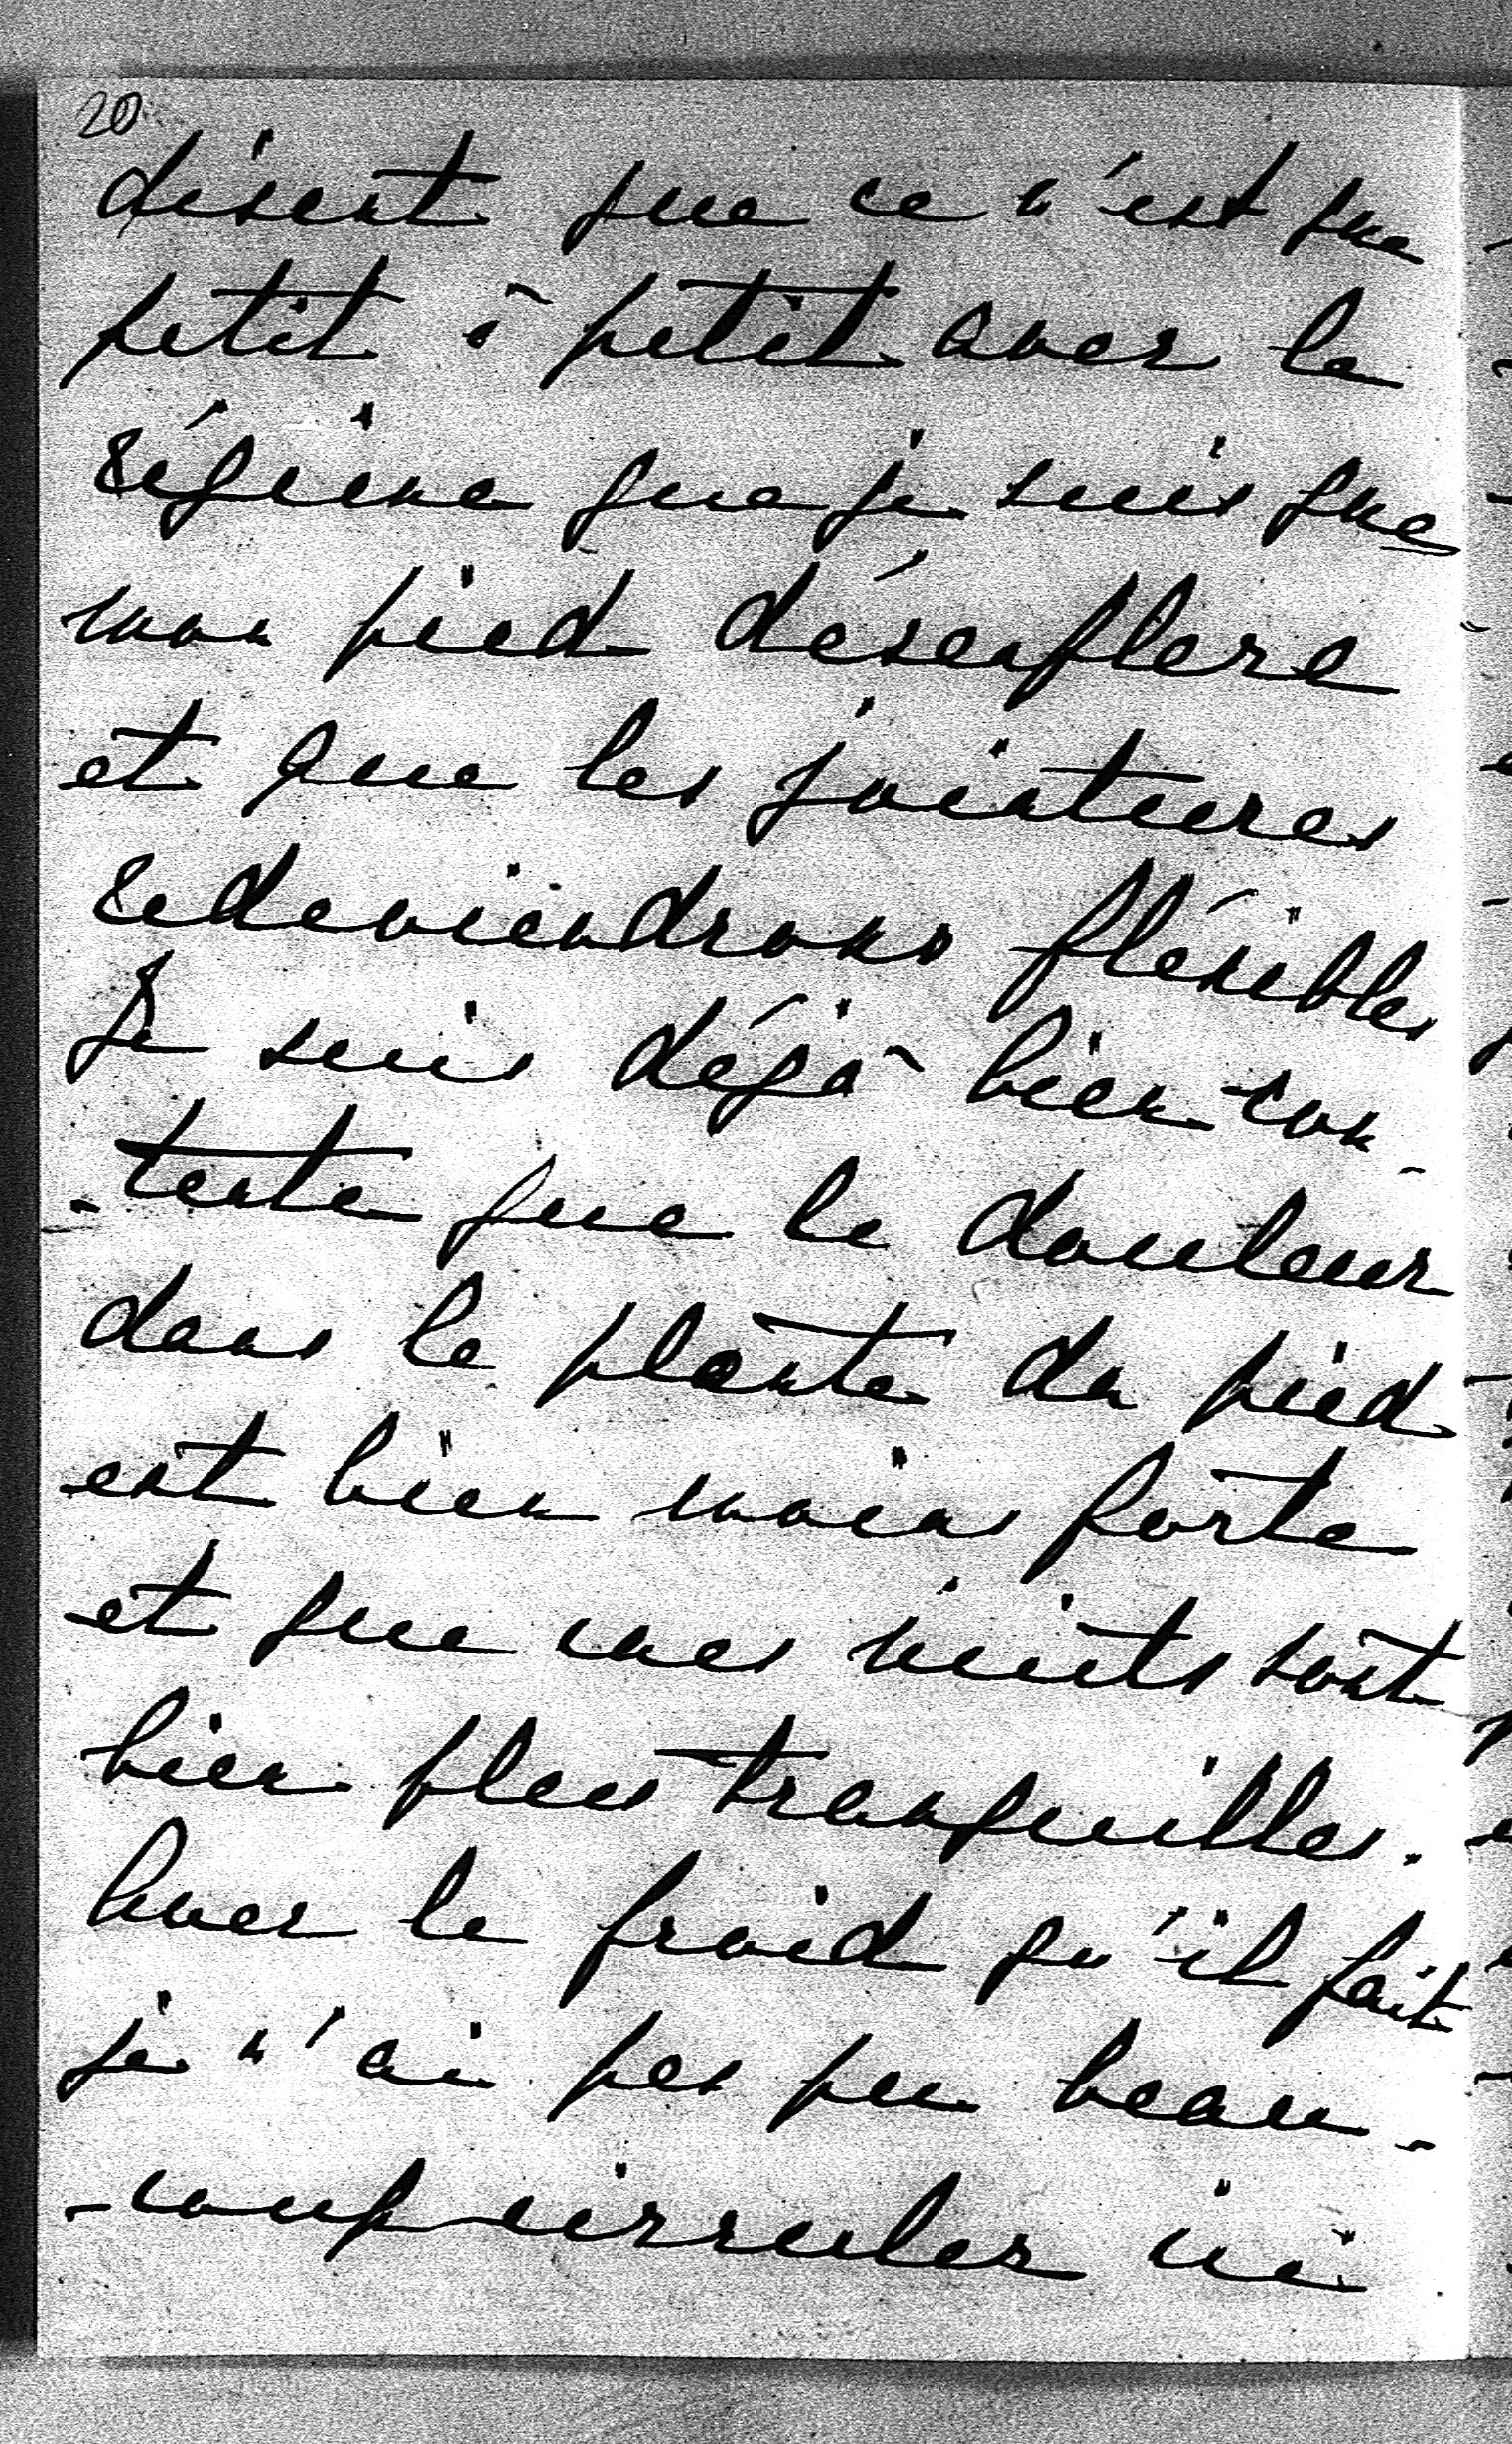 20
disent que ce n'est que
petit à petit avec le
régime que je suis que
mon pied désenflera
et que les jointures
redeviendrons fléxibles
Je suis déjà bien con-
-tente que la douleur
dans la plante du pied
est bien moins forte
et que mes nuits sont
bien plus tranquilles.
Avec le froid qu'il fait
je n'ai pas pu beau-
-coup circuler ici